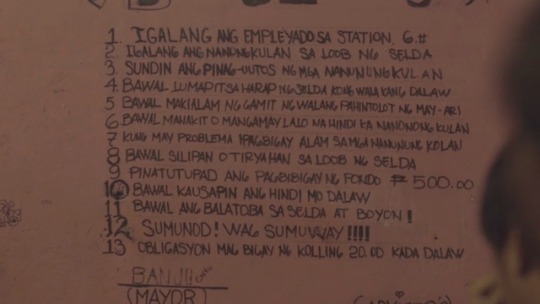 1 IGALANG ANG EMPLEYADO SA STATION. 6.#
2. IGALANG ANG NANUNGKULAN SA LOOB NG SELDA
3. SUNDIN ANG PINAG-UUTOS NG MGA NANUNUNGKULAN
4 BAWAL LUMAPIT SA HARAP NG SELDA KONG WALA KANG DALAW
5 BAWAL MAKIALAM NG GAMIT NG WALANG PAHINTOLOT NG MAY-ARI
6 BAWAL MANAKIT O MANGAMAY LALO NA HINDI KA NANONONG KULAN
7 KUNG MAY PROBLEMA IPAGBIGAY ALAM SA MGA NANUNUNG KOLAN
8 BAWAL SILIPAN O TIRYAHAN SA LOOB NG SELDA
9 PINATUTUPAD ANG PAGBIBIGAY NG FONDO ₱ 500.00
10 BAWAL KAUSAPIN ANG HINDI MO DALAW
11 BAWAL ANG BALATOBA SA SELDA AT BOYON!
12 SUMUNOD! WAG SUMUWAY !!!!
13 OBLIGASYON MAG BIGAY NG KOLLING 20.00 KADA DALAW
BANJO
(MAYOR)